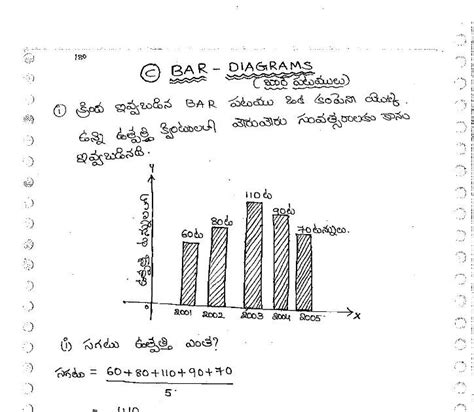 180
Ⓒ BAR - DIAGRAMS
(బార్ పటములు)
① క్రింద ఇవ్వబడిన BAR పటము ఒక కంపెనీ యొక్క
ఉన్ని ఉత్పత్తి క్వింటులలో వేరువేరు సంవత్సరాలకు గాను
ఇవ్వబడినది.
Y
ఉత్పత్తి టన్నులలో
60ట
80ట
110ట
90ట
70టన్నులు.
0
2001 2002 2003 2004 2005
X
(i) సగటు ఉత్పత్తి ఎంత?
సగటు = 60+80+110+90+70
5
= 410